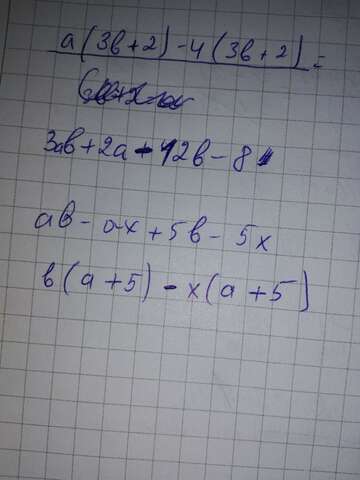 a(3b+2)-4(3b+2)=
3ab+2a-12b-8
ab-ax+5b-5x
b(a+5)-x(a+5)